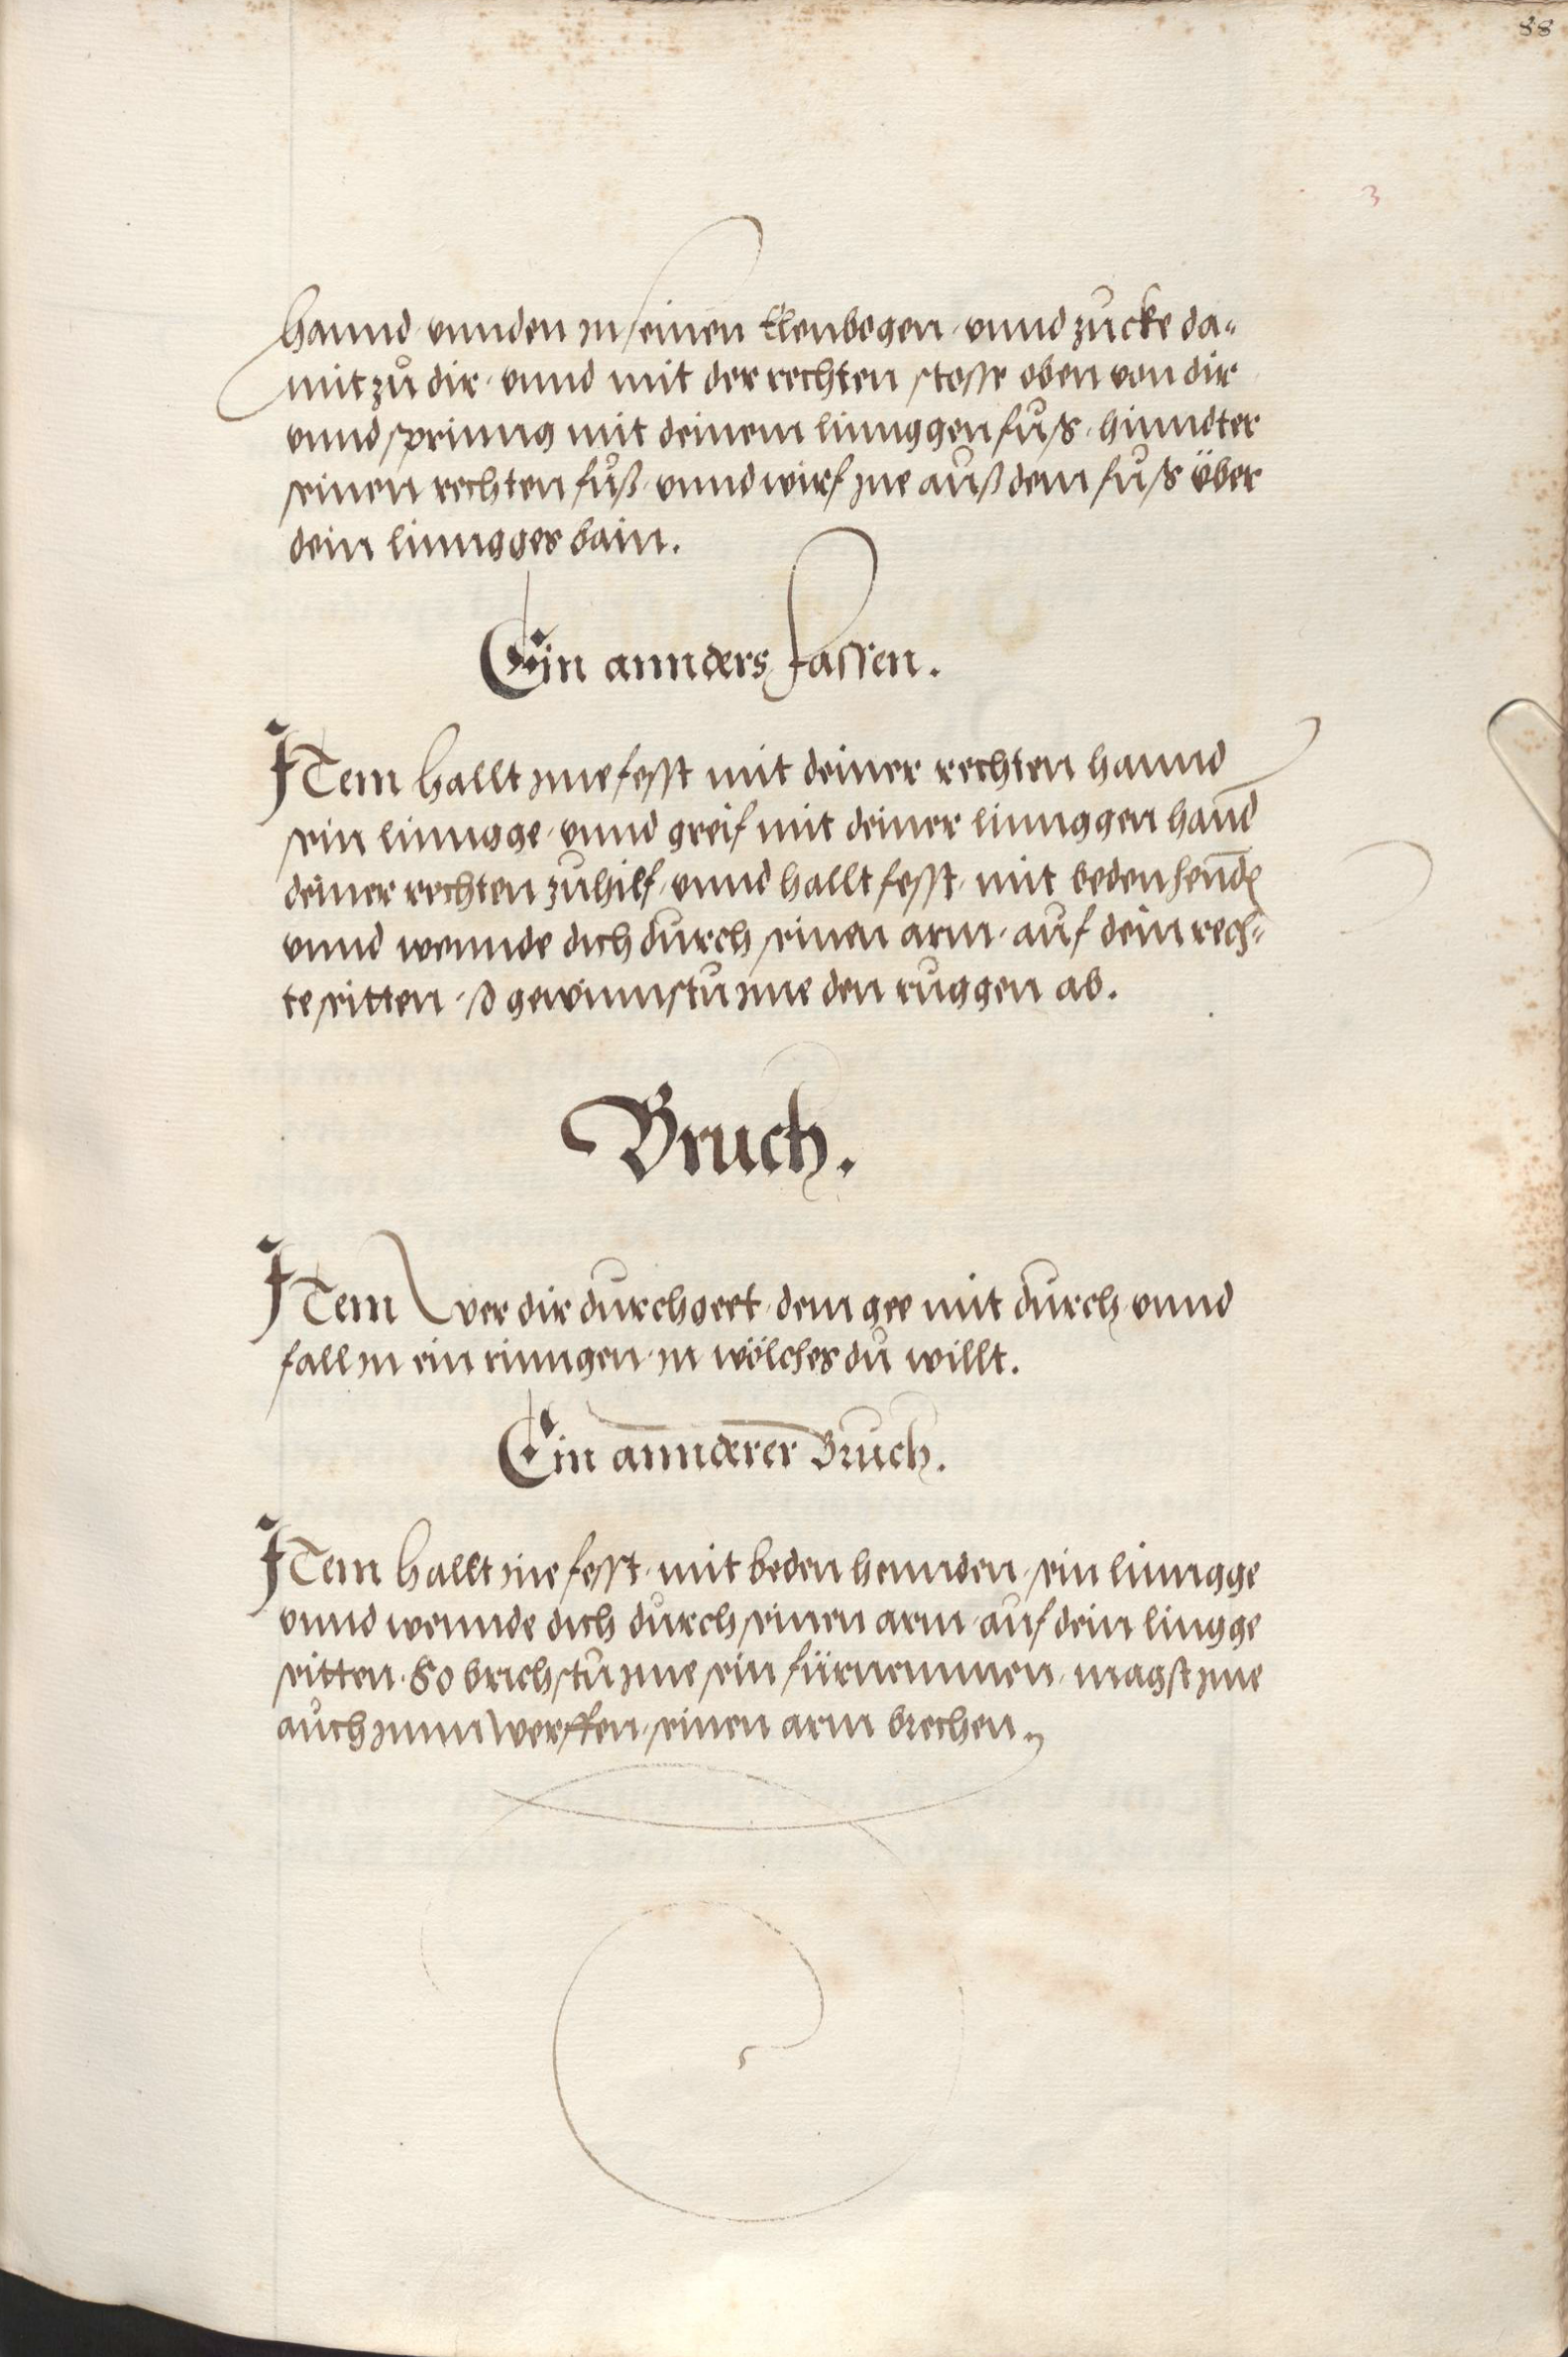 88
3
hannd vnnden in seinen Elenbogen, vnnd zucke da=
mit zů dir, vnnd mit der rechten stosse oben von dir
vnnd spring mit deinem linnggen fuß, hinndter
seinen rechten fůß, vnnd wirf ine auß dem fuß über
dein linngges bain.
Ein annders fassen.
ITem hallt ime fesst mit deiner rechten hannd
sein linngge, vnnd greif mit deiner linnggen hand
deiner rechten zuhilf, vnnd hallt fesst, mit beden hennd
vnnd wennde dich durch seinen arm, auf dein rech=
te seitten, so gewinnstu ime den ruggen ab.
Bruch.
ITem wer dir durchgeet, dem gee mit durch, vnnd
fall in ein rinngen, in wölches du willt.
Ein annderer Bruch.
ITem hallt ime fesst, mit beden hennden, sein linngge
vnnd wennde dich durch seinen arm, auf dein lingge
seitten. So brichstu ime sein fürnemmen, magst ime
auch imm werffen, seinen arm brechen.